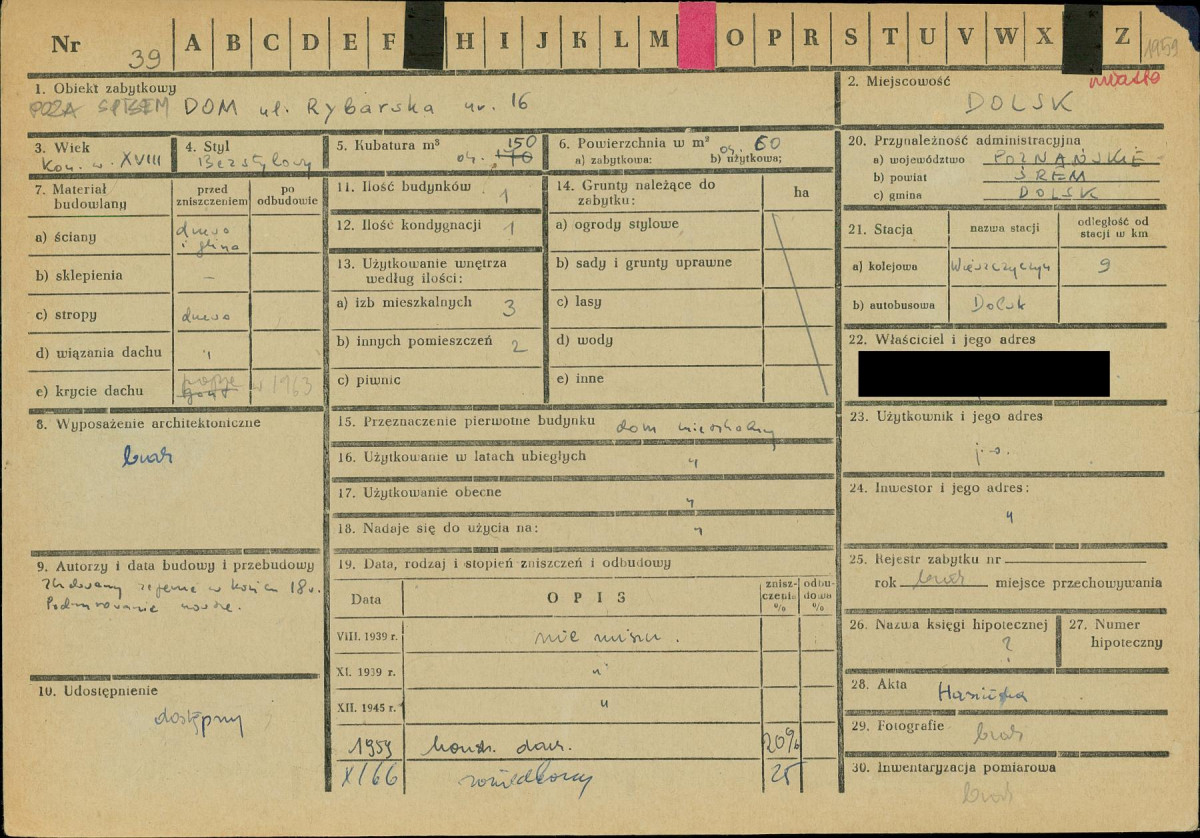 Nr 39 A B C D E F H I J K L M O P R S T U V W X Z 1959
1. Obiekt zabytkowy
POZA SPISEM DOM ul. Rybarska nr. 16
2. Miejscowość miasto
DOLSK
3. Wiek
Kon. w. XVIII
4. Styl
Bezstylowy
5. Kubatura m³ 150
ok. 170
6. Powierzchnia w m² ok. 60
a) zabytkowa: b) użytkowa;
20. Przynależność administracyjna
a) województwo POZNAŃSKIE
b) powiat ŚREM
c) gmina DOLSK
7. Materiał budowlany
przed zniszczeniem
po odbudowie
a) ściany drewno i glina
b) sklepienia –
c) stropy drewno
d) wiązania dachu "
e) krycie dachu papa w 1963
gont
11. Ilość budynków 1
12. Ilość kondygnacji 1
13. Użytkowanie wnętrza według ilości:
a) izb mieszkalnych 3
b) innych pomieszczeń 2
c) piwnic
14. Grunty należące do zabytku: ha
a) ogrody stylowe
b) sady i grunty uprawne
c) lasy
d) wody
e) inne
21. Stacja
nazwa stacji
odległość od stacji w km
a) kolejowa 9
b) autobusowa Dolsk
22. Właściciel i jego adres
8. Wyposażenie architektoniczne
brak
15. Przeznaczenie pierwotne budynku dom mieszkalny
16. Użytkowanie w latach ubiegłych "
17. Użytkowanie obecne "
18. Nadaje się do użycia na: "
23. Użytkownik i jego adres
j.w.
24. Inwestor i jego adres:
"
9. Autorzy i data budowy i przebudowy
Zbudowany zapewne w końcu 18 w.
Podmurowanie nowsze.
19. Data, rodzaj i stopień zniszczeń i odbudowy
Data
O P I S
zniszczenia %
odbudowa %
VIII. 1939 r. nie niszcz.
XI. 1939 r. "
XII. 1945 r. "
1959 20%
XI 66 25
25. Rejestr zabytku nr
rok brak miejsce przechowywania
26. Nazwa księgi hipotecznej
?
27. Numer hipoteczny
10. Udostępnienie
dostępny
28. Akta
29. Fotografie
brak
30. Inwentaryzacja pomiarowa
brak